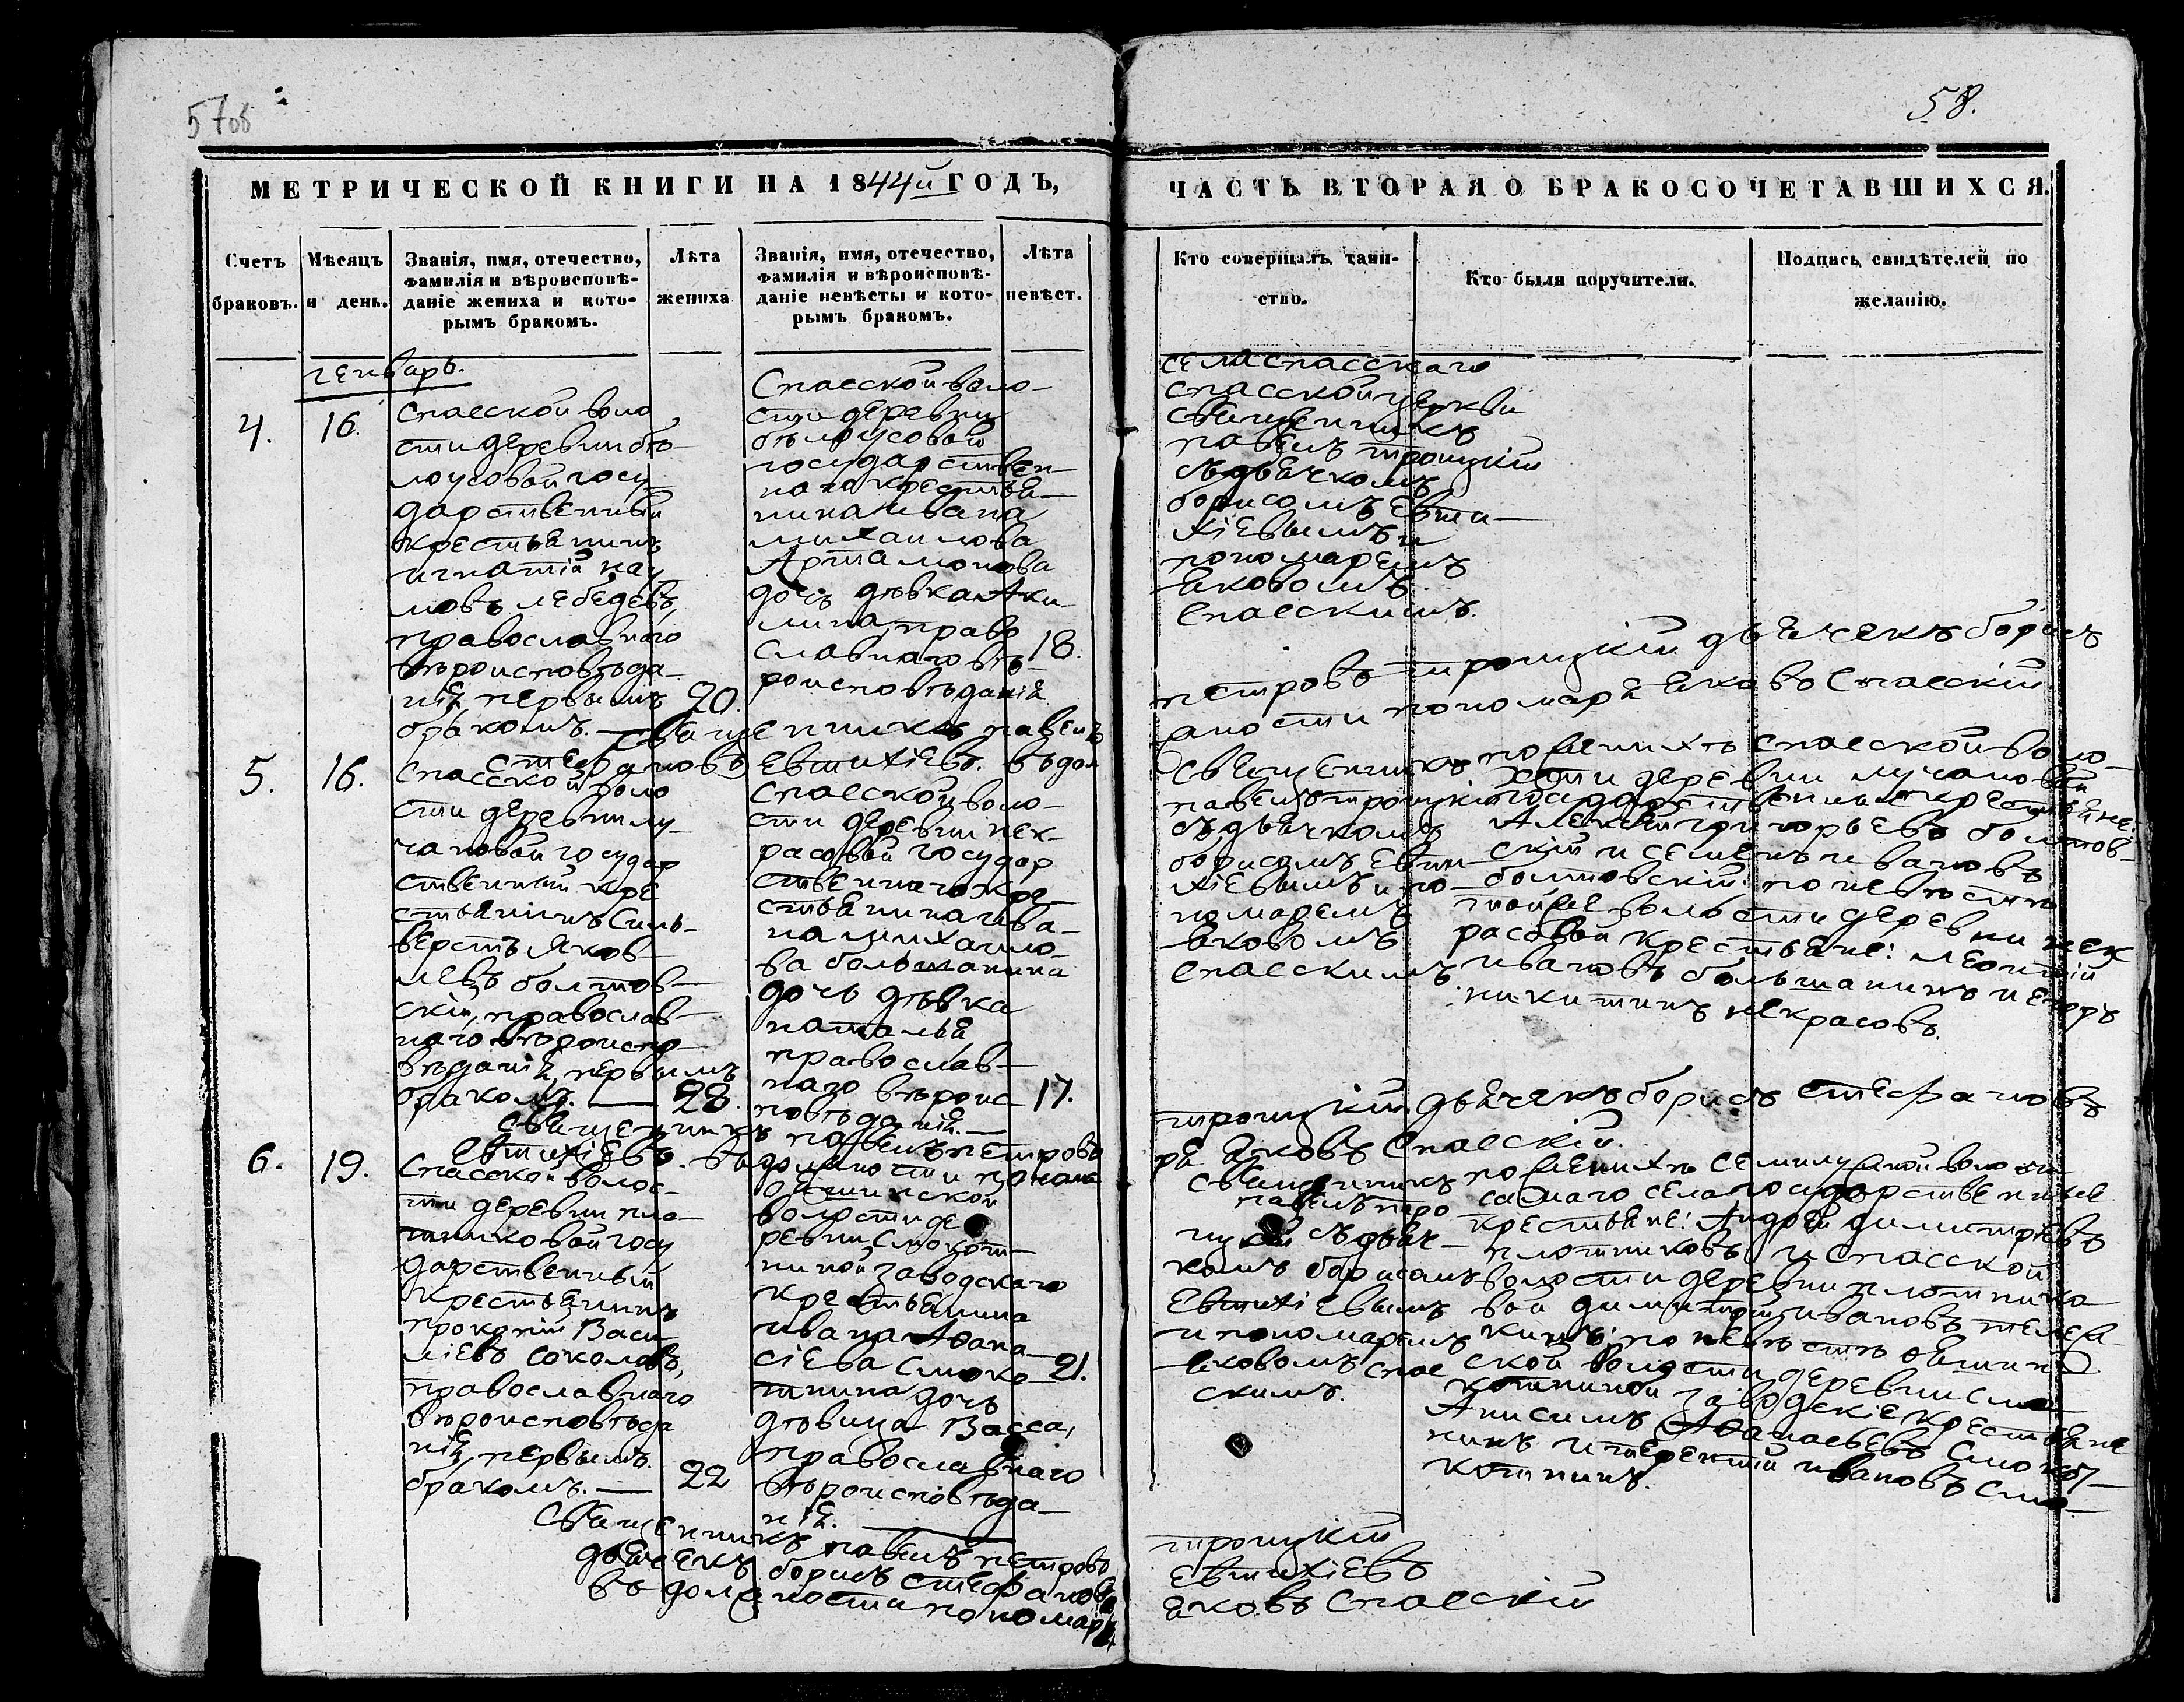 57об
58.
МЕТРИЧЕСКОЙ КНИГИ НА 1844й ГОДЪ,
ЧАСТЬ ВТОРАЯ О БРАКОСОЧЕТАВШИХСЯ.
Счетъ
браковъ.
Мѣсяцъ
и день.
Званія, имя, отечество,
фамилія и вѣроисповѣ-
даніе жениха и кото-
рымъ бракомъ.
Лѣта
жениха
Званія, имя, отечество,
фамилія и вѣроисповѣ-
даніе невѣсты и кото-
рымъ бракомъ.
Лѣта
невѣст.
Кто совершалъ таин-
ство.
Кто были поручители.
Подпись свидѣтелей по
желанію.
генварь.
4.
16.
Спасской воло
сти деревни бѣ-
лоусовой госу-
дарственный
крестьянинъ
игнатій нау
мовъ лебедевъ,
православнаго
вѣроисповѣда-
нія, первымъ
бракомъ.
20.
Спасской воло-
сти деревни
бѣлоусовой
государствен-
наго крестья-
нина ивана
михаилова
Артамонова
дочь дѣвка Аки-
лина, право
славнаго вѣ-
роисповѣданія.
18.
села спасскаго
спасской церкви
священникъ
павелъ троицкій
съ дьячкомъ
борисомъ Евти-
хіевымъ и
пономаремъ
яковомъ
спасскимъ.
священникъ павелъ
петровъ троицкій дьячекъ борисъ
стефановъ Евтихіевъ. въ дол
жности пономаря яковъ Спасскій
5.
16.
Спасской воло
сти деревни лу-
чановой государ
ственный кре
стьянинъ Силь-
верстъ Яков-
левъ болтов-
скій, православ-
наго вѣроиспо-
вѣданія, первымъ
бракомъ.
28.
Спасской воло-
сти деревни нек-
расовой государ
ственнаго кре-
стьянина ива-
на михаило-
ва большанина
дочь дѣвка
наталья
православ-
наго вѣроис-
повѣданія.
17.
Священникъ
павелъ троицкій
съ дьячкомъ
борисомъ Евти-
хіевымъ и по-
номаремъ
яковомъ
спасскимъ
по женихѣ спасской воло-
сти деревни лучановой
государственные крестьяне:
Алексѣй григорьевъ болтов-
скій и семенъ ивановъ
болтовскій: по невѣстѣ
той же волости деревни нек
расовой крестьяне: леонтій
ивановъ большанинъ и Егоръ
никитинъ некрасовъ.
священникъ павелъ петровъ
троицкій. дьячекъ борисъ стефановъ
Евтихіевъ. въ должности понома
ря яковъ Спасскій.
6.
19.
Спасской волос-
ти деревни пло-
тниковой госу
дарственный
крестьянинъ
прокопій Васи-
ліевъ соколовъ,
православнаго
вѣроисповѣда
нія, первымъ
бракомъ.
22
волости де
ревни Смокот-
ниной заводскаго
крестьянина
ивана Аѳана-
сіева Смоко-
тнина дочь
дѣвица Васса,
православнаго
вѣроисповѣда-
нія.
21.
священникъ
павелъ тро-
ицкій съ дьяч-
комъ борисомъ
Евтихіевымъ
и пономаремъ
яковомъ спас
скимъ.
по женихѣ семилужной волости
самаго села государственные
крестьяне: Андрей димитріевъ
плотниковъ и спасской
волости деревни плотнико
вой димитрій ивановъ
по невѣстѣ
ской волости деревни смо-
котниной заводскіе крестьяне
Анисимъ Аѳанасьевъ Смокот-
нинъ и терентій ивановъ смо-
котнинъ.
священникъ павелъ петровъ
троицкій
дьячекъ борисъ стефановъ
Евтихіевъ
въ должности пономаря
яковъ Спасскій